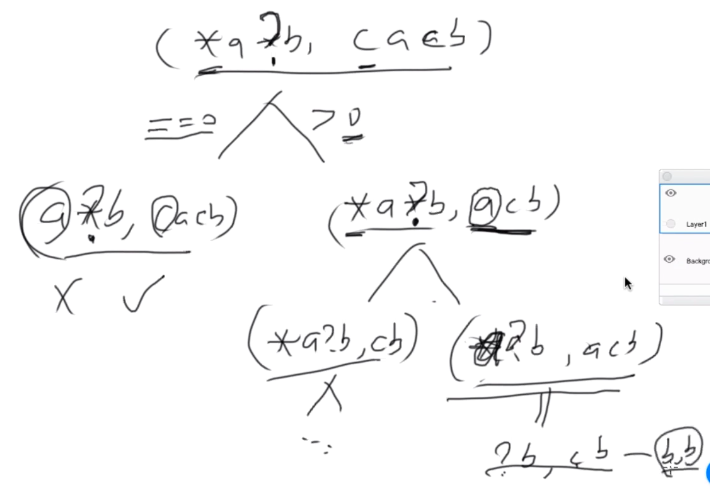 (*a?b, cacb)
===0 >0
(a?b, cacb) (*a?b, acb)
x ✓
(*a?b, cb) (a?b, acb)
...
?b, cb — b,b
Layer1
Backgro